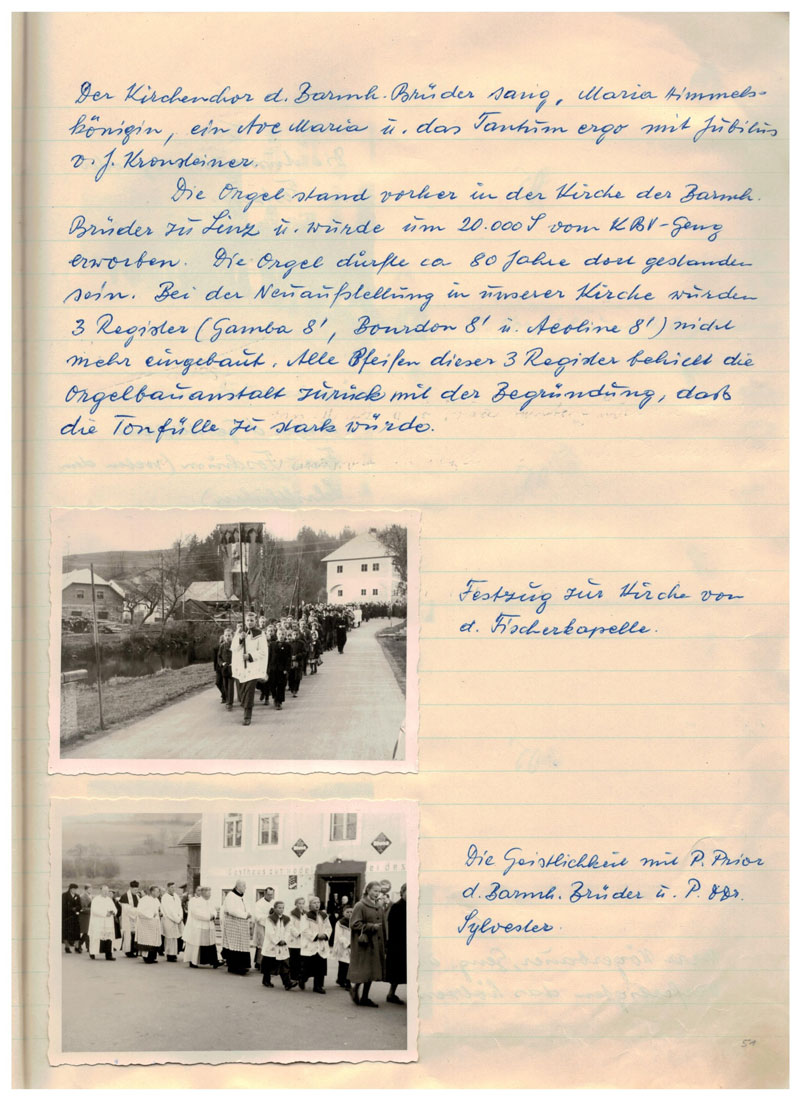 Der Kirchenchor d. Barmh. Brüder sang, Maria Himmels-
königin, ein Ave Maria u. das Tantum ergo mit Jubilus
v. J. Kronsteiner.
Die Orgel stand vorher in der Kirche der Barmh.
Brüder zu Linz u. wurde um 20.000 S vom KBV-Geng
erworben. Die Orgel dürfte ca 80 Jahre dort gestanden
sein. Bei der Neuaufstellung in unserer Kirche wurden
3 Register (Gamba 8', Bourdon 8' u. Aeoline 8') nicht
mehr eingebaut. Alle Pfeifen dieser 3 Register behielt die
Orgelbauanstalt zurück mit der Begründung, daß
die Tonfülle zu stark würde.
Festzug zur Kirche von
d. Fischerkapelle.
Gasthaus
Die Geistlichkeit mit P. Prior
d. Barmh. Brüder u. P. DDr.
Sylvester.
51